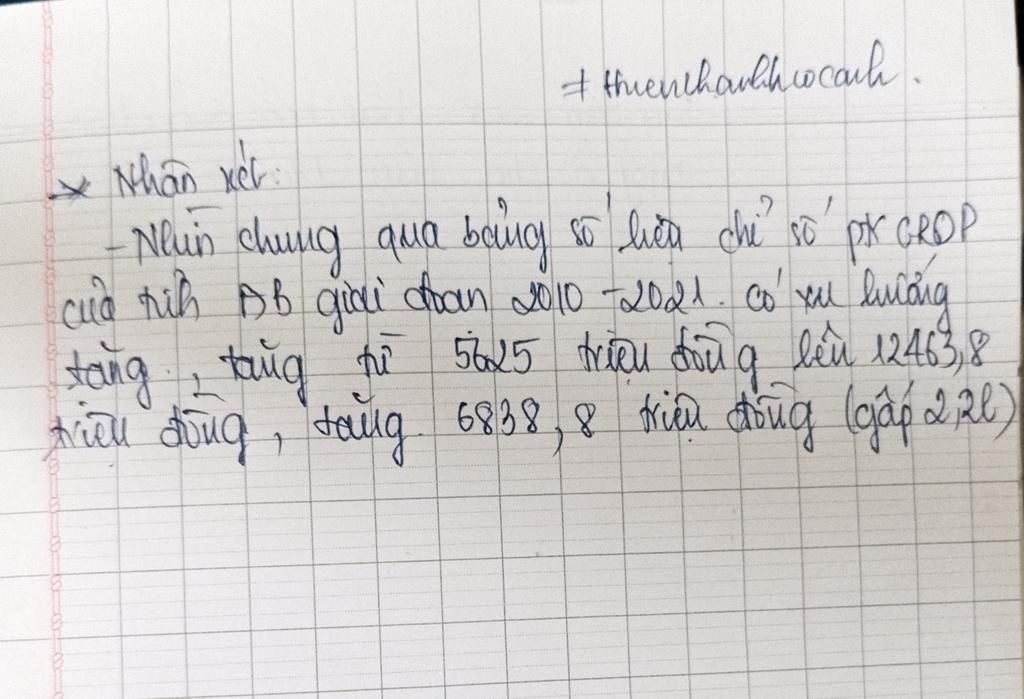 # thienthanhhocanh.
* Nhận xét:
- Nhìn chung qua bảng số liệu chỉ số pt GRDP
của tỉnh AB giai đoạn 2010-2021. có xu hướng
tăng, tăng từ 5625 triệu đồng lên 12463,8
triệu đồng, tăng 6838,8 triệu đồng (gấp 2,2l)